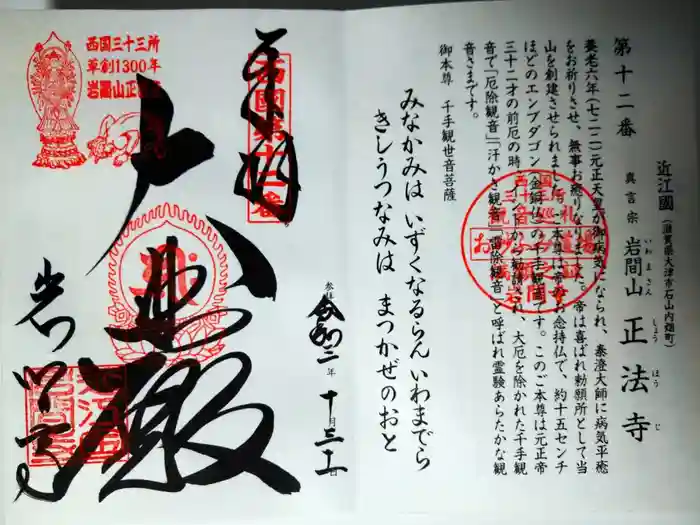 第十二番
近江國（滋賀県大津市石山内畑町）
真言宗 岩間山 正法寺
いわまさん しょう ほう じ
養老六年（七二二）元正天皇が御病気になられ、泰澄大師に病気平癒
をお祈りさせ、無事お癒りなりました。帝は喜ばれ勅願所として当
山を創建させられました。本尊は帝のお念持仏で、約十五センチ
ほどのエンブダゴン（金銅仏）の千手観音です。このご本尊は元正帝
三十二才の前厄の時、インドから勧請され、大厄を除かれた千手観
音で「厄除観音」「汗かき観音」「雷除観音」と呼ばれ霊験あらたかな観
音さまです。
御本尊 千手観世音菩薩
みなかみは いずくなるらん いわまでら
きしうつなみは まつかぜのおと
奉拝
西國第十二番
西国三十三所
草創1300年
岩間山正法寺
大悲殿
岩間寺
参拝 令和二年 十月三十一日